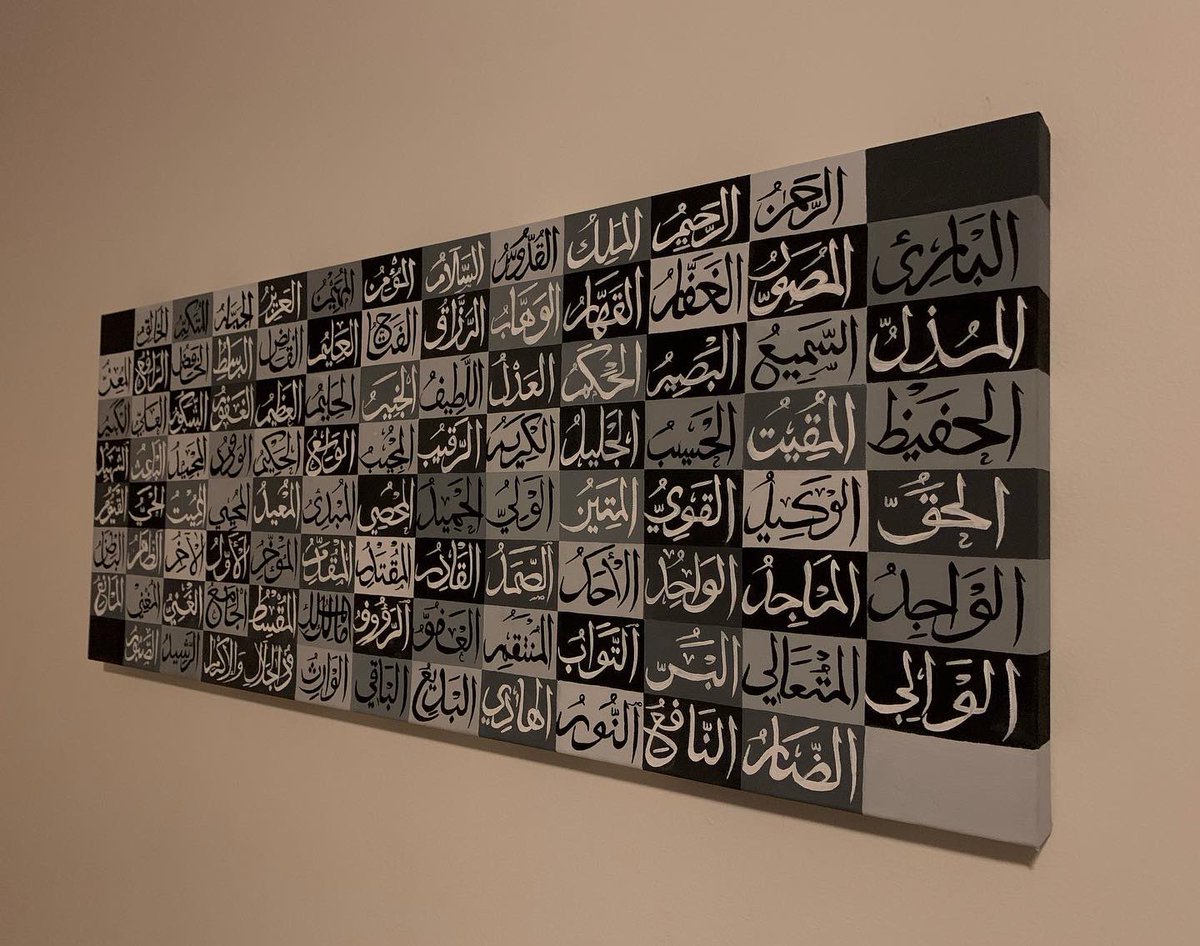 الرَّحمٰنُ الرَّحِيمُ المَلِكُ القُدُّوسُ السَّلَامُ المُؤْمِنُ المُهَيْمِنُ العَزِيزُ الجَبَّارُ المُتَكَبِّرُ الخَالِقُ
البَارِئ المُصَوِّرُ الغَفَّارُ القَهَّارُ الوَهَّابُ الرَّزَّاقُ الفَتَّاحُ العَلِيمُ القَابِضُ البَاسِطُ الخَافِضُ الرَّافِعُ المُعِزُّ
المُذِلُّ السَّمِيعُ البَصِيرُ الحَكَمُ العَدْلُ اللَّطِيفُ الخَبِيرُ الحَلِيمُ العَظِيمُ الغَفُورُ الشَّكُورُ العَلِيُّ الكَبِيرُ
الحَفِيظُ المُقِيت الحَسِيبُ الجَلِيلُ الكَرِيمُ الرَّقِيبُ المُجِيبُ الوَاسِعُ الحَكِيمُ الوَدُودُ المَجِيدُ البَاعِثُ الشَّهِيدُ
الحَقُّ الوَكِيلُ القَوِيُّ المَتِينُ الوَلِيُّ الحَمِيدُ المُحْصِي المُبْدِئُ المُعِيدُ المُحْيِي المُمِيتُ الحَيُّ القَيُّومُ
الوَاجِدُ المَاجِدُ الوَاحِدُ الأَحَدُ الصَّمَدُ القَادِرُ المُقْتَدِرُ المُقَدِّمُ المُؤَخِّرُ الأَوَّلُ الآخِرُ الظَّاهِرُ البَاطِنُ
الوَالِي المُتَعَالِي البَرُّ التَّوَّابُ المُنْتَقِمُ العَفُوُّ الرَّؤُوفُ مَالِكُ المُلْك المُقْسِطُ الجَامِعُ الغَنِيُّ المُغْنِي المَانِعُ
الضَّارُّ النَّافِعُ النُّورُ الهَادِي البَدِيعُ البَاقِي الوَارِثُ ذُو الجَلَالِ وَالإِكْرَام الرَّشِيدُ الصَّبُورُ